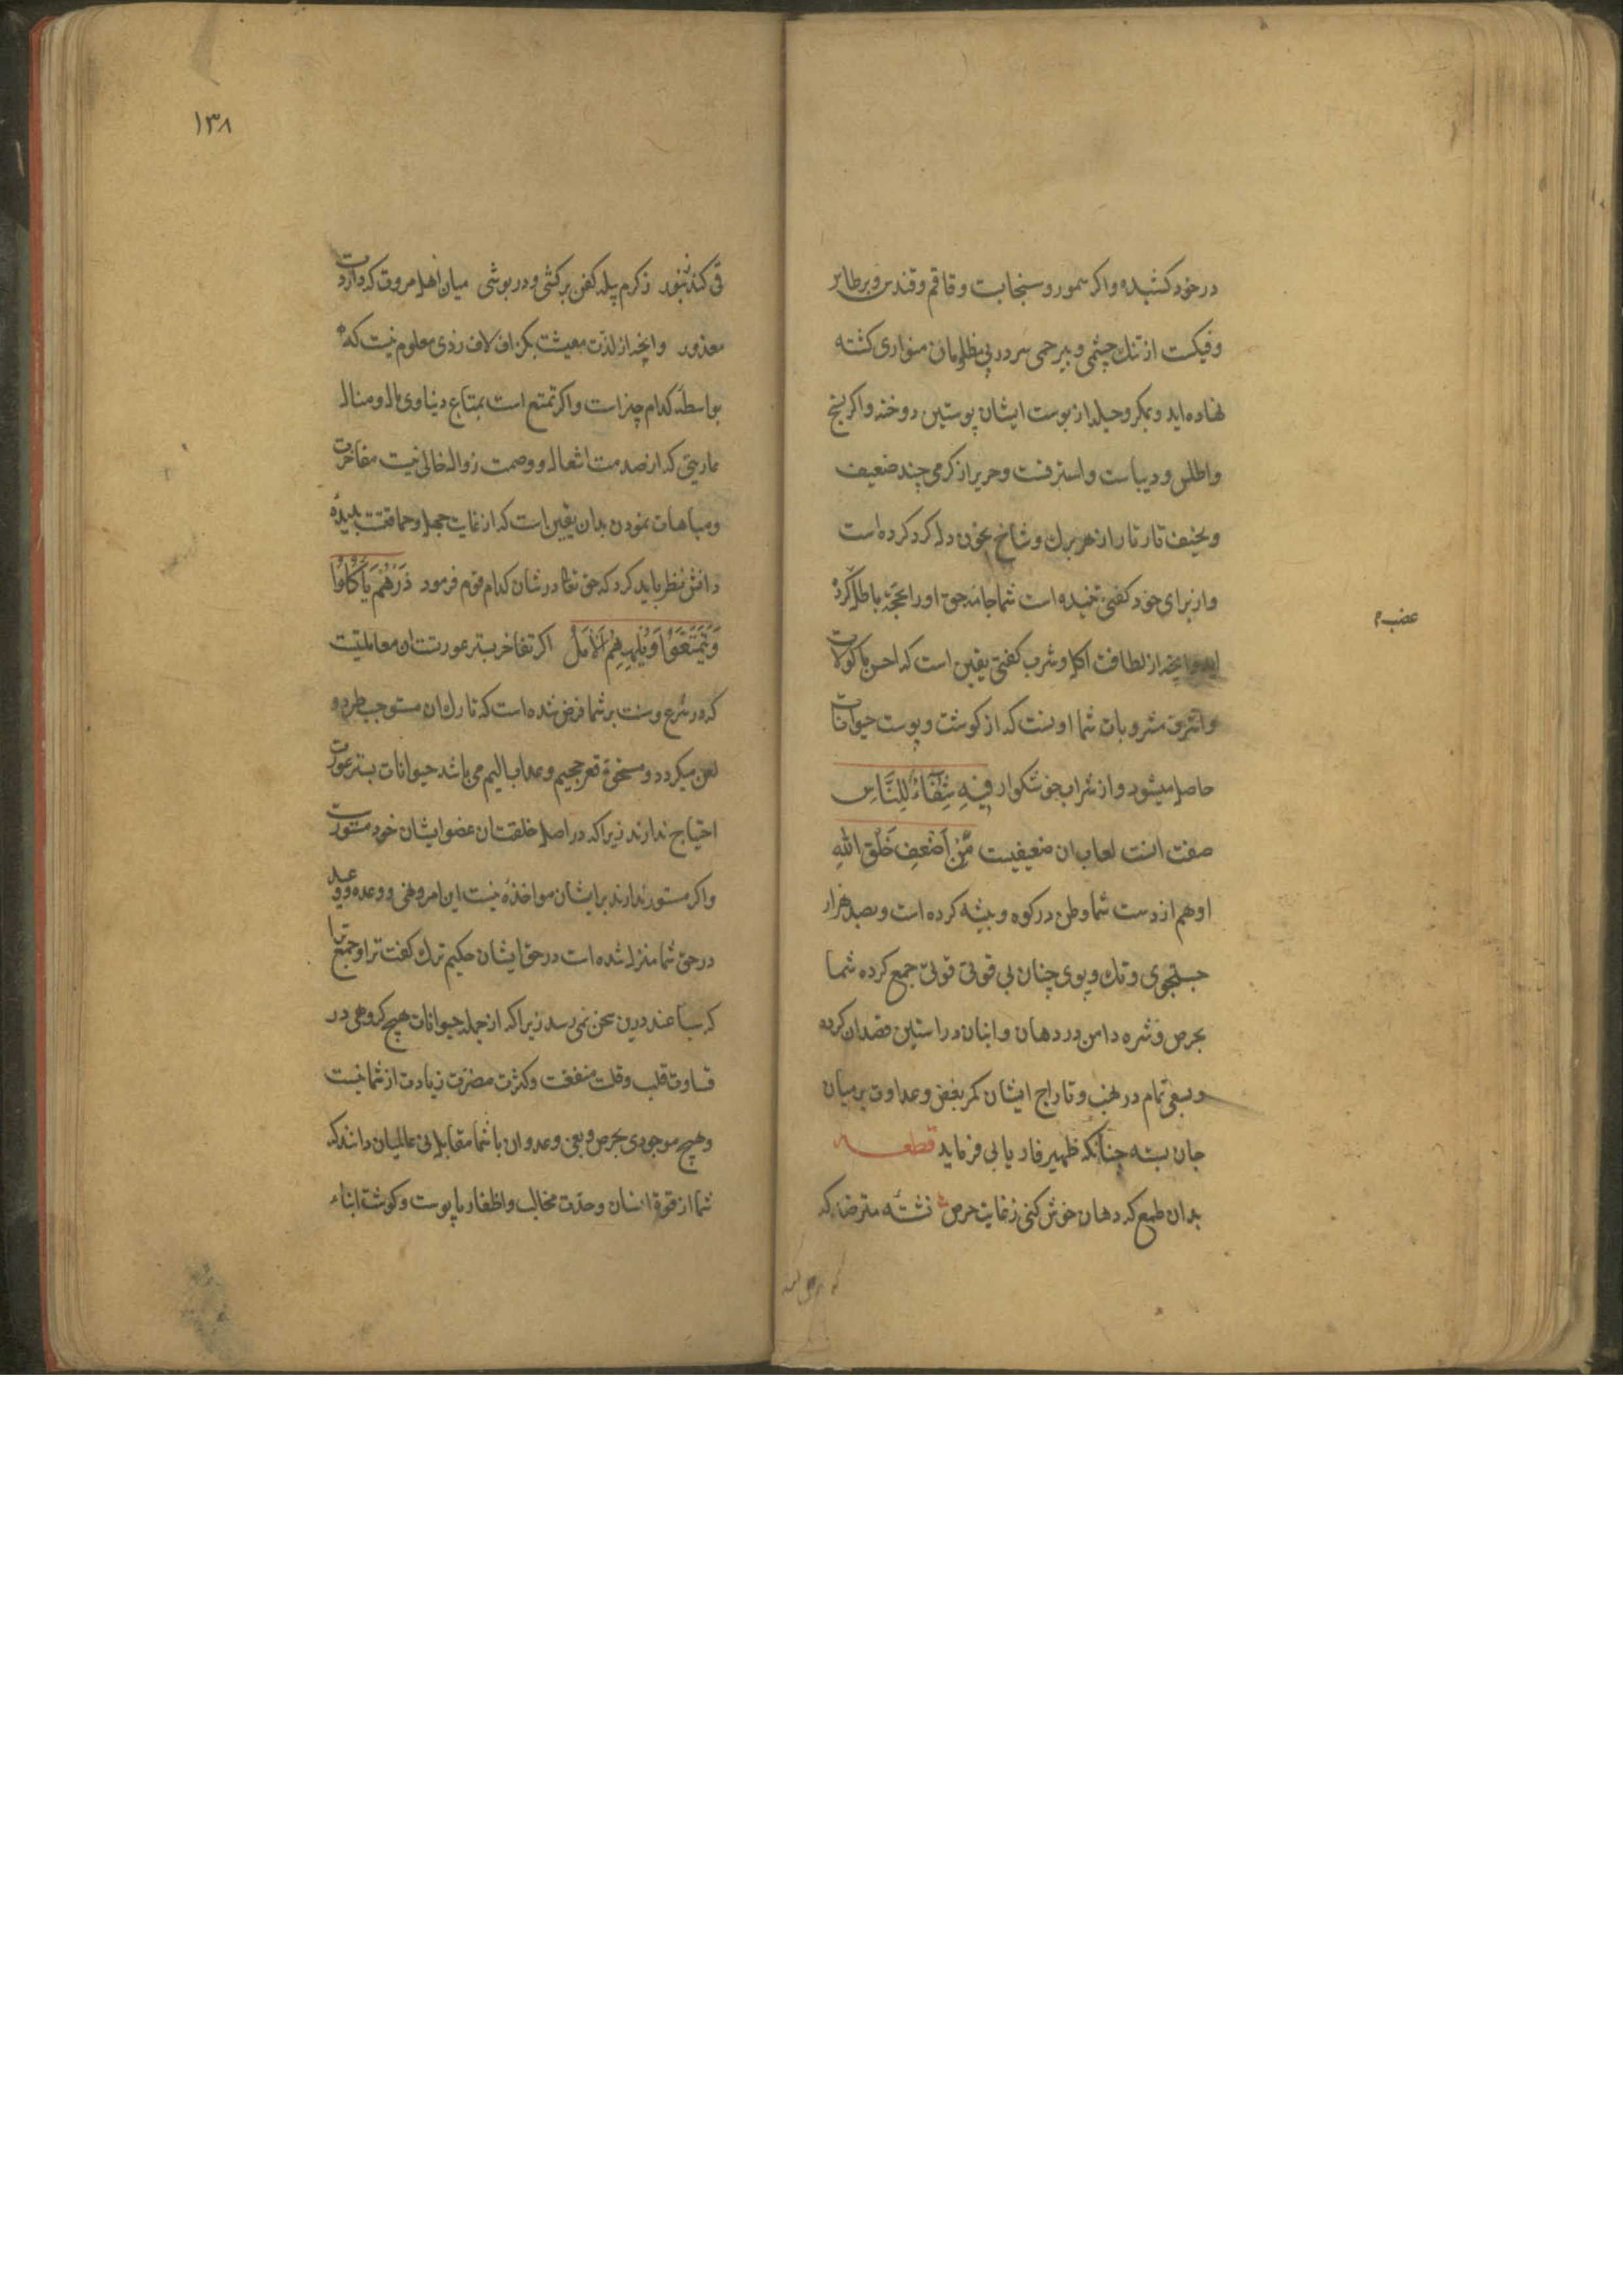 در خود کشیده و اکر سمور و سنجابت و قاقم و قندس و برطایر
و فیکست از تنک چشمی و بیرحمی سر در پی مظلومان متواری کشته
نهاده اید و بمکر و حیله از پوست ایشان پوستین دوخته و اکر نخ
و اطلس و دیباست و استبرقت و حریر از کرمی چند ضعیف
و نحیف تار تار از هر برک و شاخ بخون دل کرد کرده است
و از برای خود کفنی تنیده است شما جامه حق او را بحجة باطل کرده
اید و آنچه از لطافت اکل و شرب کفتی یقین است که احسن ماکولات
و اشرف مشروبات شما اونست که از کوشت و پوست حیوانات
حاصل میشود و از شراب خوشکوار فِیهِ شِفَاءٌ لِلنَّاسِ
صفت انست لعاب ان ضعیفیت مِنْ اَضْعَفِ خَلْقِ اللّٰهِ
او هم از دست شما وطن در کوه و بیشه کرده است و بصد هزار
جستجوی و تک و پوی چنان بی قوتی قوتی جمع کرده شما
بحرص و شره دامن در دهان و انبان در استین قصد ان کرده
و بسعی تمام در نهب و تاراج ایشان کمر بغض و عداوت بر میان
جان بسته چنانکه ظهیر فاریابی فرماید قطعه
بدان طمع که دهان خوش کنی ز غایت حرص نشسته مترصد که
۱۳۸
قی کند زنبور ز کرم پیله کفن برکشی و در پوشی میان اهل مروت که داردت
معذور و آنچه از لذت معیشت بکزاف لاف زدی معلوم نیست که
بواسطهٔ کدام چیز است و اکر تمتع است بمتاع دنیاوی مال و منال
عاریتی که از صدمت انتقال و وصمت زوال خالی نیست مفاخرت
و مباهات نمودن بدان یقین است که از غایت جهل و حماقتست بدیدهٔ
دانش نظر باید کرد که حق تعا در شان کدام قوم فرمود ذَرْهُمْ یَأْکُلُوا
وَیَتَمَتَّعُوا وَیُلْهِهِمُ الْاَمَلُ اکر تفاخر بستر عورتست ان معاملتیست
که در شرع و سنت بر شما فرض شده است که تارک ان مستوجب طرد و
لعن میکردد و مستحق قعر جحیم و عذاب الیم می باشد حیوانات بستر عورت
احتیاج ندارند زیرا که در اصل خلقتان عضو ایشان خود مستورست
و اکر مستور ندارند بر ایشان مواخذه نیست این امر و نهی و وعده و وعید
در حق شما منزل شده است در حق ایشان حکیم ترک کفت ترا و جمع ترا
که سباعند درین سخن نمی رسد زیرا که از جمله حیوانات هیچ کروهی در
قساوت قلب و قلت منفعت و کثرت مضرت زیادت از شما نیست
و هیچ موجودی بحرص و بغی و عدوان با شما مقابل نی عالمیان دانند که
شما از قوة انسان و حدت مخالب و اظفار با پوست و کوشت ابناء